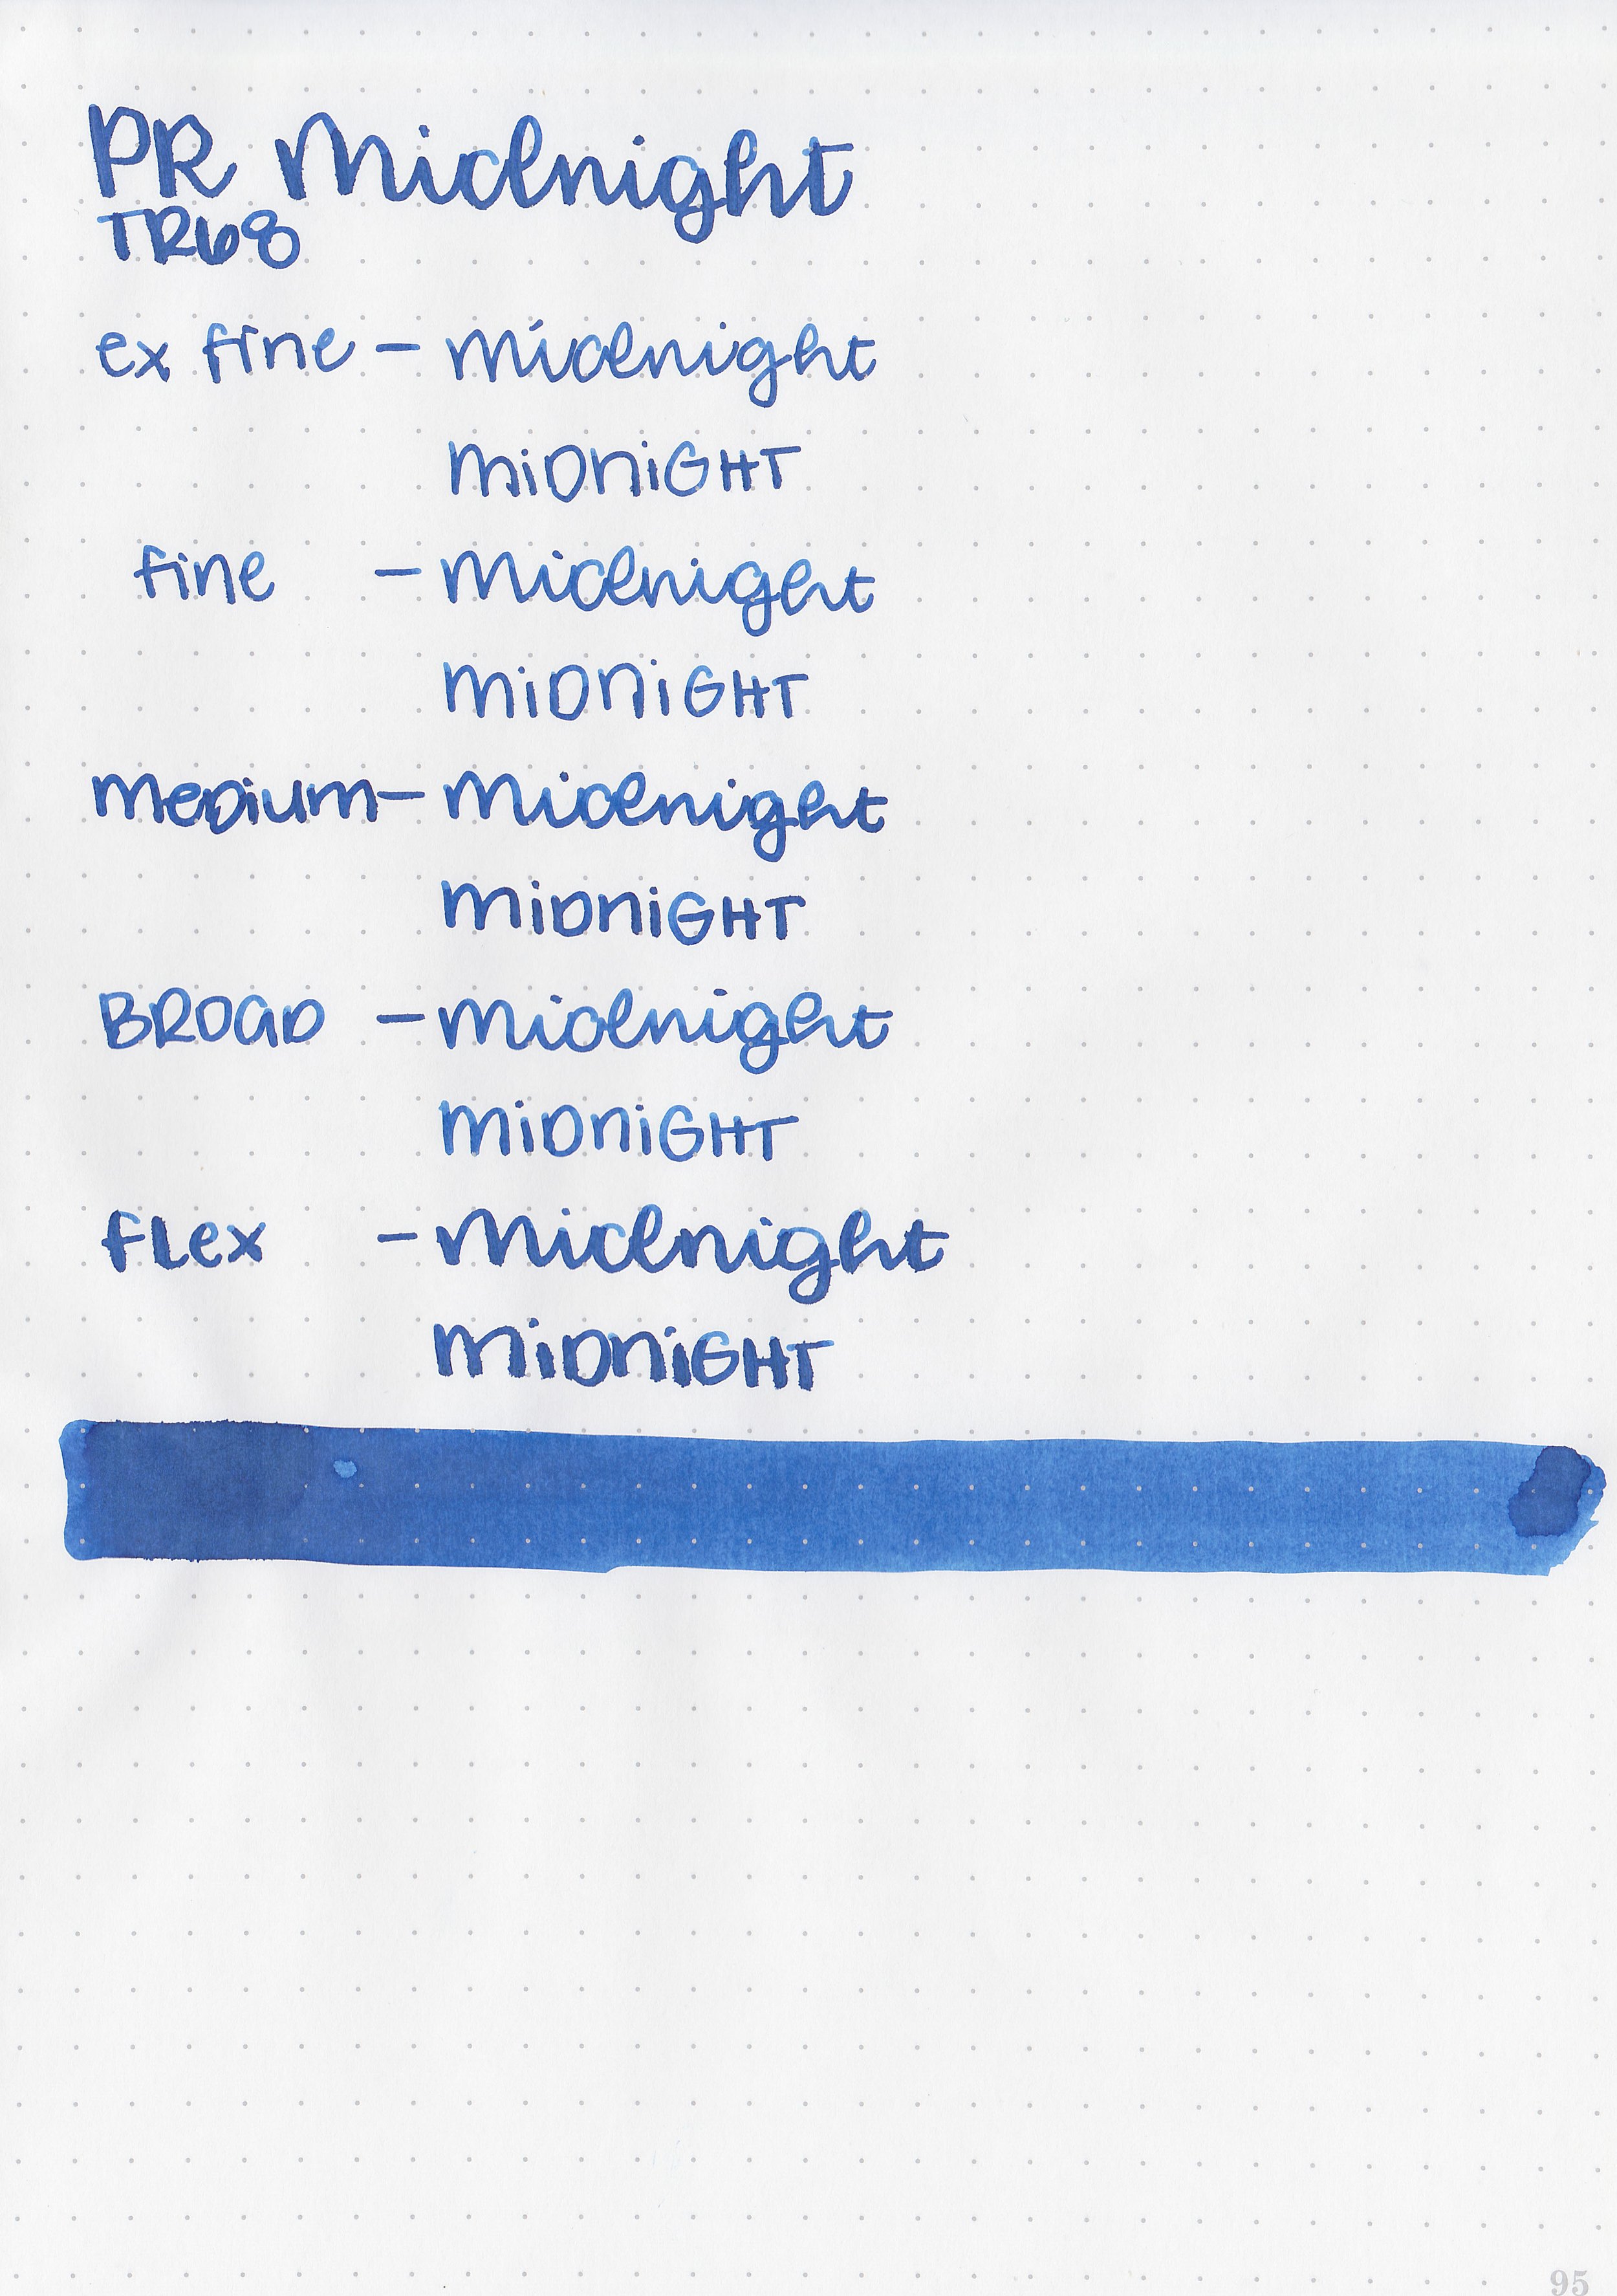 PR Midnight
TR68
ex fine - Midnight
MiDNiGHT
fine - Midnight
MiDNiGHT
MeDium - Midnight
MiDNiGHT
BROAD - Midnight
MiDNiGHT
fLex - Midnight
MiDNiGHT
95